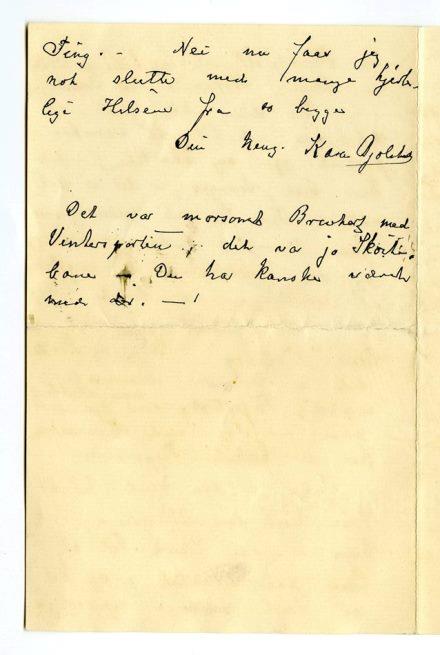 Ting. – Nei nu faar jeg
nok slutte med mange hjerte-
lige Hilsene fra os begge
Din heng. Kara
Det var morsomt Brevkort med
Vintersporten, det var jo
bane – Du har kanske været
med der. — !